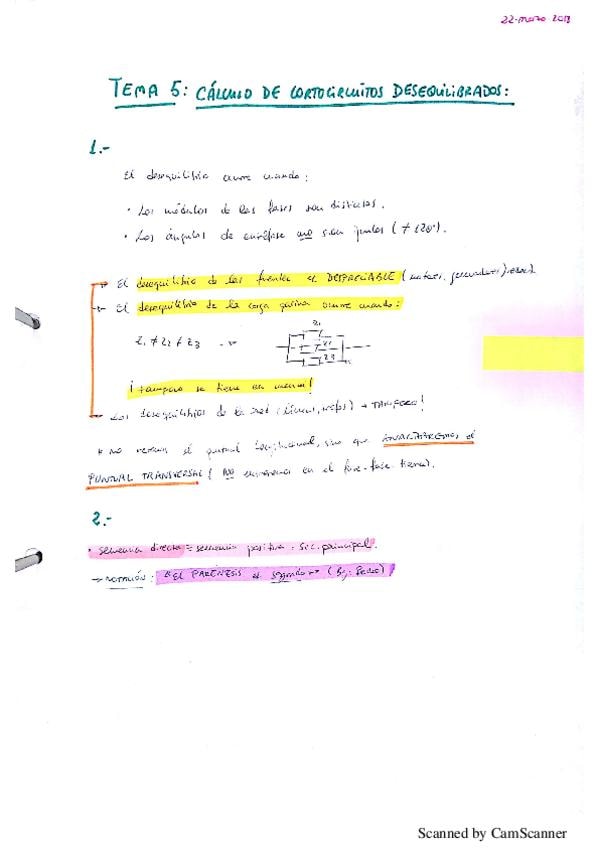 22-marzo 2018
TEMA 5: CÁLCULO DE CORTOCIRCUITOS DESEQUILIBRADOS:
1.-
El desequilibrio ocurre cuando:
· Los módulos de las fases son distintos.
· Los ángulos de no son (≠ 120°).
→ El desequilibrio de las fuentes es DESPRECIABLE (
→ El desequilibrio de la carga ocurre cuando:
Z1 ≠ Z2 ≠ Z3
Z1
Z2
Z3
¡tampoco se tiene en
→ Los desequilibrios de la red (líneas, → TAMPOCO!
* no el longitudinal, sino que ANALIZAREMOS el
PUNTUAL TRANSVERSAL ( NO en el fase-fase-tierra).
2.-
· secuencia directa = secuencia positiva = sec. principal.
→ NOTACIÓN: "El PARÉNTESIS es
Scanned by CamScanner